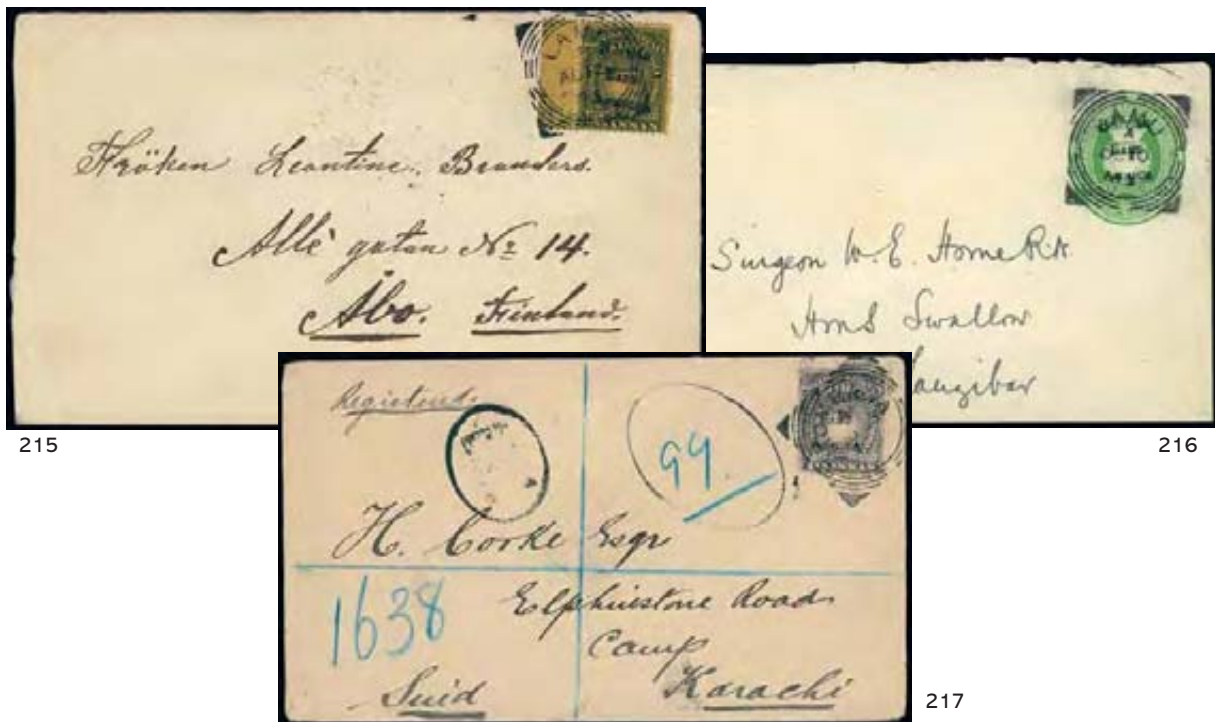 Fröken Leontine Branders.
Allé gatan No 14.
Åbo. Finland.
215
Surgeon W. E. Home R.N.
HMS Swallow
Zanzibar
216
Registered
99
H. Corke Esqr
1638
Elphinstone Road
Camp
Sind Karachi
217